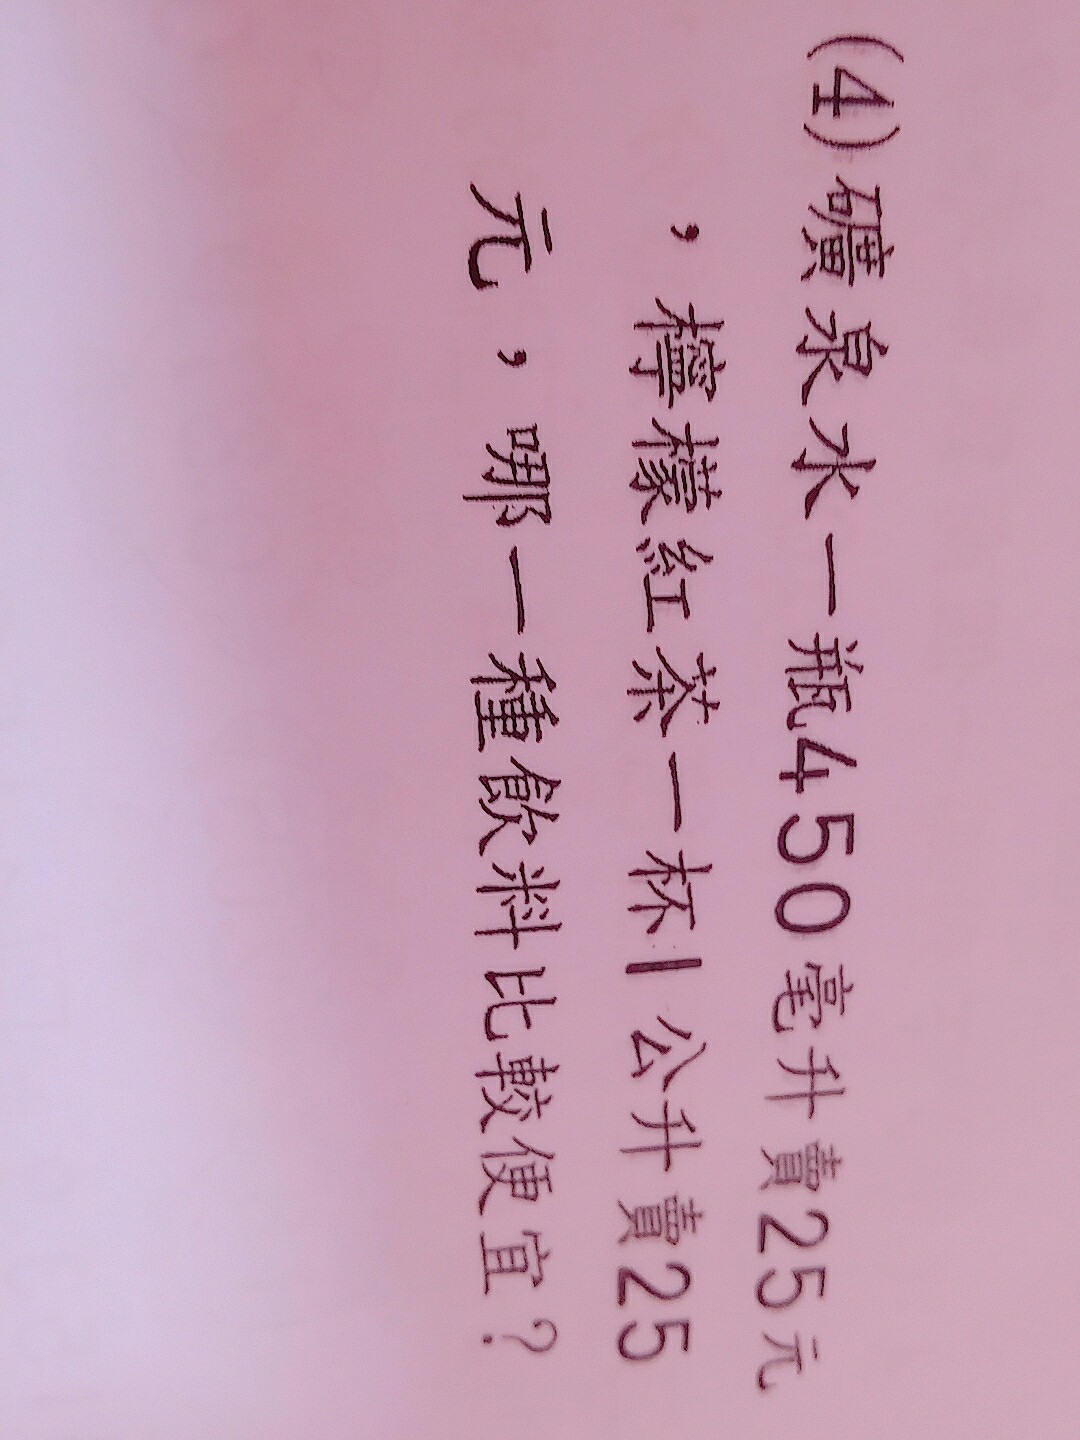 (4)礦泉水一瓶450毫升賣25元
，檸檬紅茶一杯1公升賣25
元，哪一種飲料比較便宜？